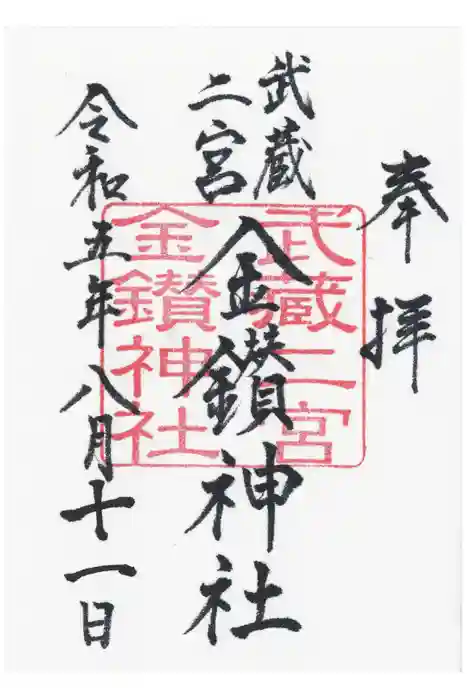 奉拝
武蔵
二宮
金鑚神社
武蔵二宮
金鑚神社
令和五年八月十一日